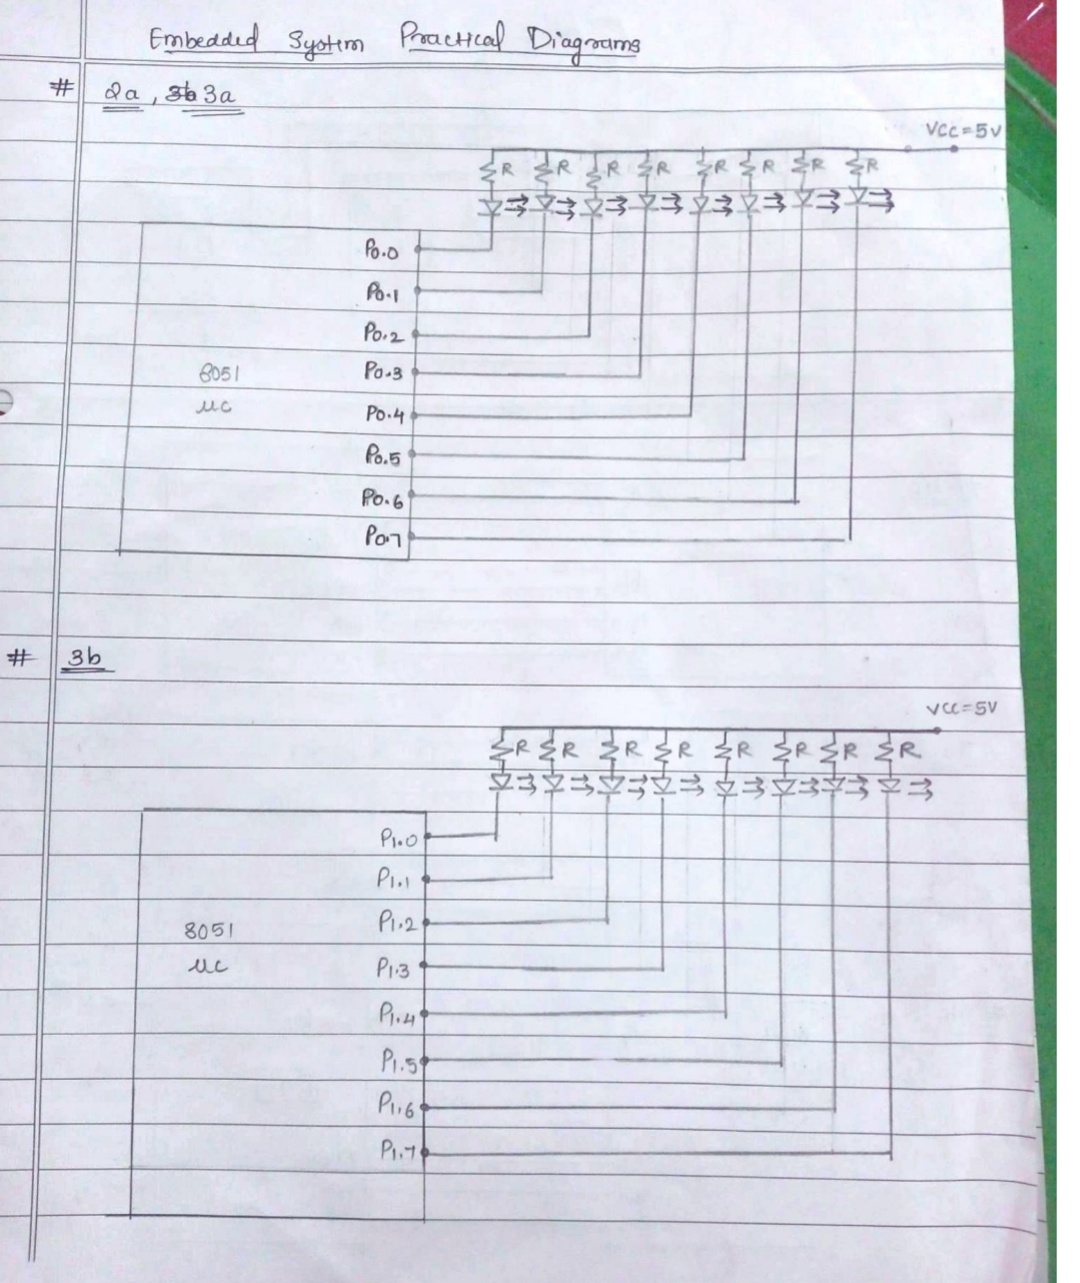 Embedded System Practical Diagrams
# 2a, 3b 3a
VCC=5V
R R R R R R R R
P0.0
P0.1
P0.2
P0.3
8051
µC
P0.4
P0.5
P0.6
P0.7
# 3b
VCC=5V
R R R R R R R R
P1.0
P1.1
P1.2
8051
µC
P1.3
P1.4
P1.5
P1.6
P1.7